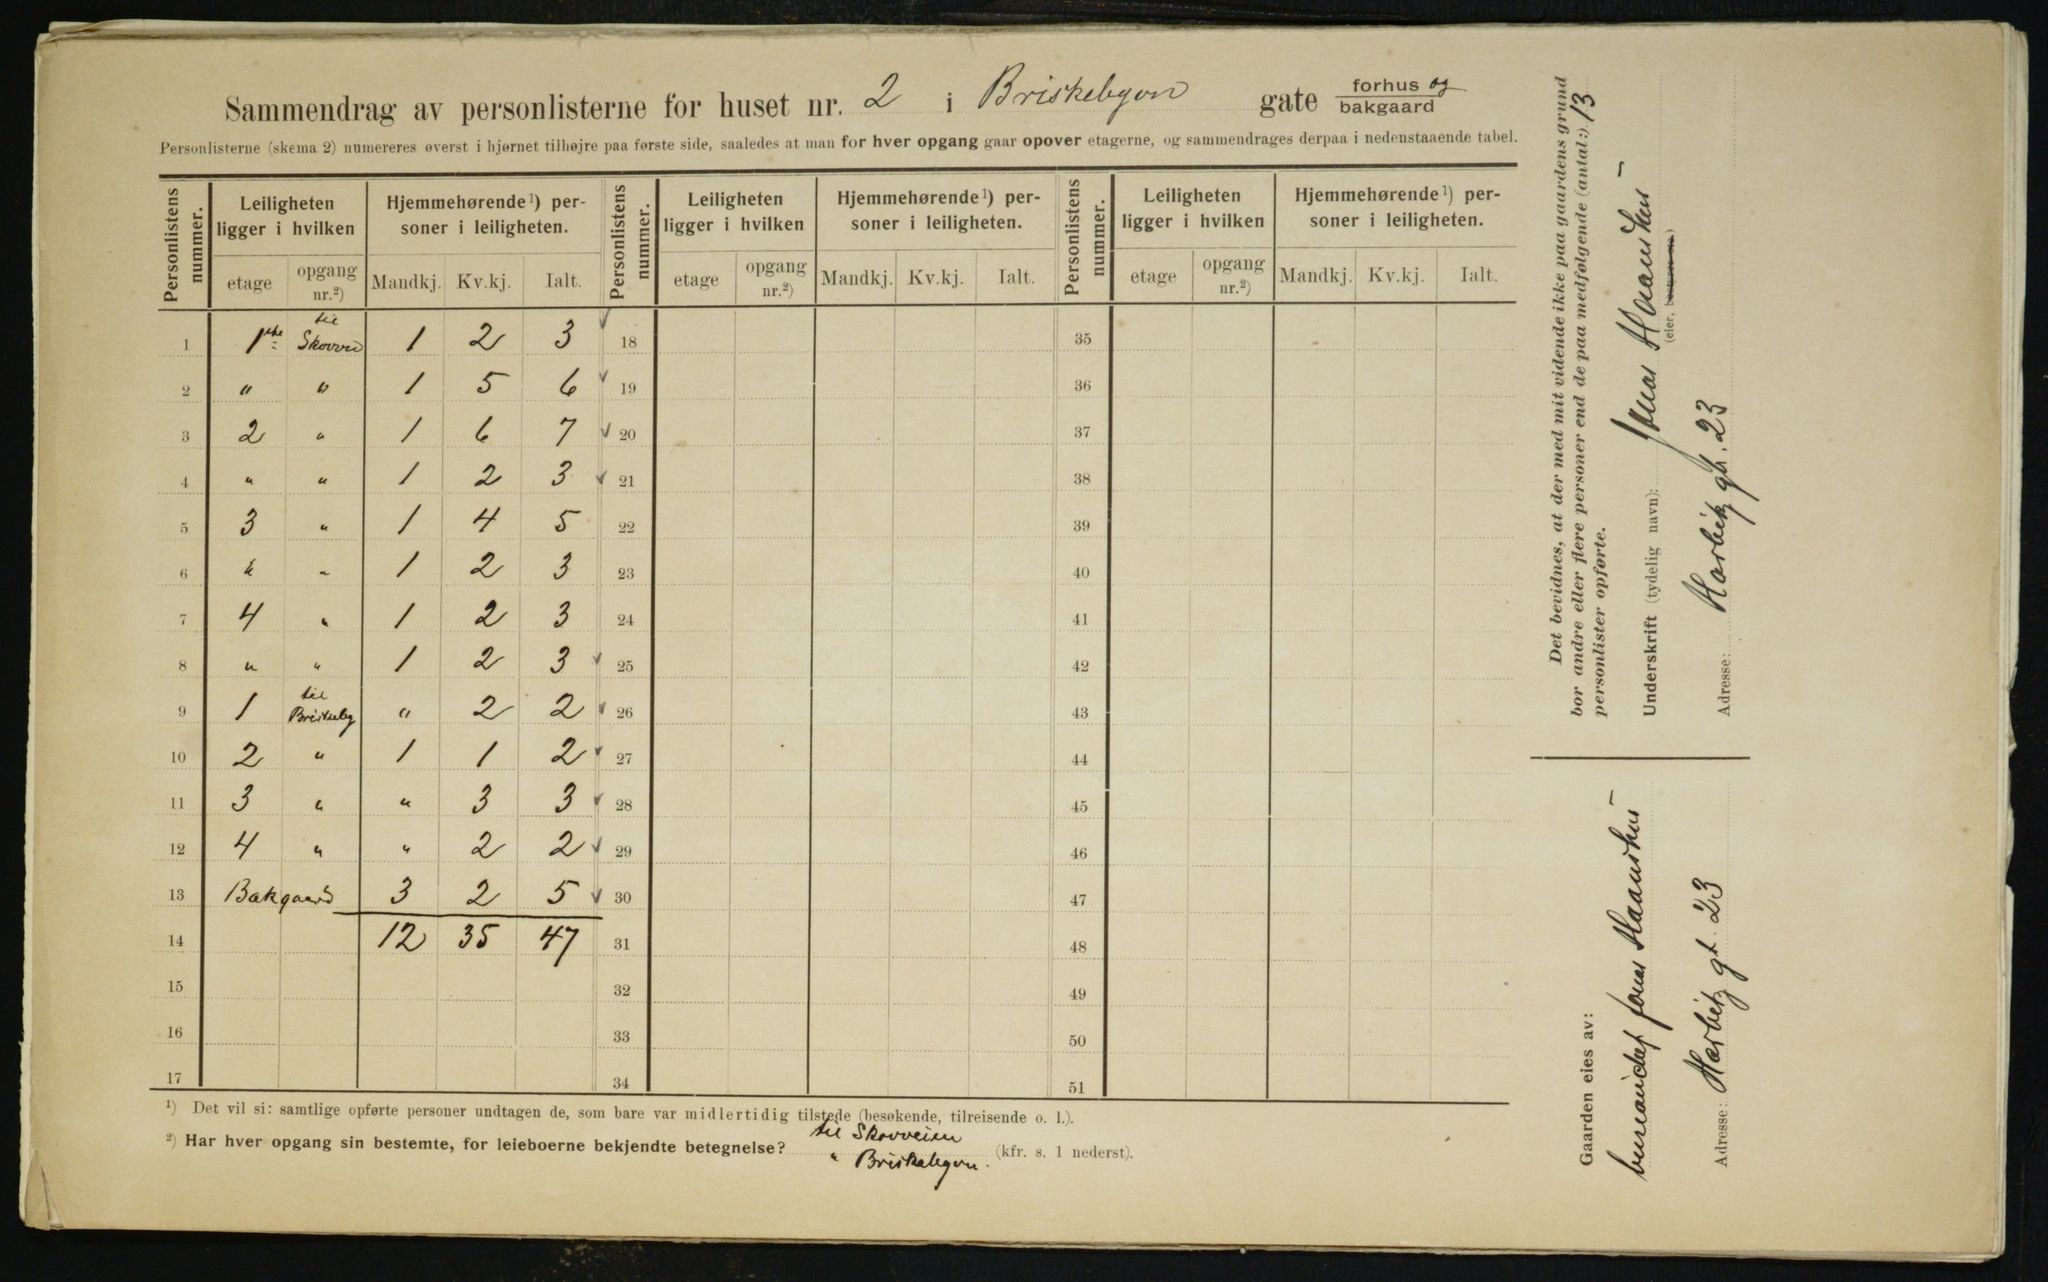 Sammendrag av personlisterne for huset nr. 2 i Briskebyvn gate forhus og bakgaard
Personlisterne (skema 2) numereres øverst i hjørnet tilhøjre paa første side, saaledes at man for hver opgang gaar opover etagerne, og sammendrages derpaa i nedenstaaende tabel.
Personlistens nummer. Leiligheten ligger i hvilken Hjemmehørende ¹) personer i leiligheten. Personlistens nummer. Leiligheten ligger i hvilken Hjemmehørende ¹) personer i leiligheten. Personlistens nummer. Leiligheten ligger i hvilken Hjemmehørende ¹) personer i leiligheten.
etage opgang nr.²) Mandkj. Kv.kj. Ialt. etage opgang nr.²) Mandkj. Kv.kj. Ialt. etage opgang nr.²) Mandkj. Kv.kj. Ialt.
1 1ste til Skovvei 1 2 3 18 35
2 " " 1 5 6 19 36
3 2 " 1 6 7 20 37
4 " " 1 2 3 21 38
5 3 " 1 4 5 22 39
6 " " 1 2 3 23 40
7 4 " 1 2 3 24 41
8 " " 1 2 3 25 42
9 1 til Briskeby " 2 2 26 43
10 2 " 1 1 2 27 44
11 3 " " 3 3 28 45
12 4 " " 2 2 29 46
13 Bakgaard 3 2 5 30 47
14 12 35 47 31 48
15 32 49
16 33 50
17 34 51
¹) Det vil si: samtlige opførte personer undtagen de, som bare var midlertidig tilstede (besøkende, tilreisende o. l.).
²) Har hver opgang sin bestemte, for leieboerne bekjendte betegnelse? til Skovveien
" Briskebyvn. (kfr. s. 1 nederst).
Det bevidnes, at der med mit vidende ikke paa gaardens grund
bor andre eller flere personer end de paa medfølgende (antal:) 13
personlister opførte.
Underskrift (tydelig navn): Jonas Haanshus
(eier, bestyrer o.l.)
Adresse: Harbitz gt. 23
Gaarden eies av:
Jonas Haanshus
Adresse: Harbitz gt. 23